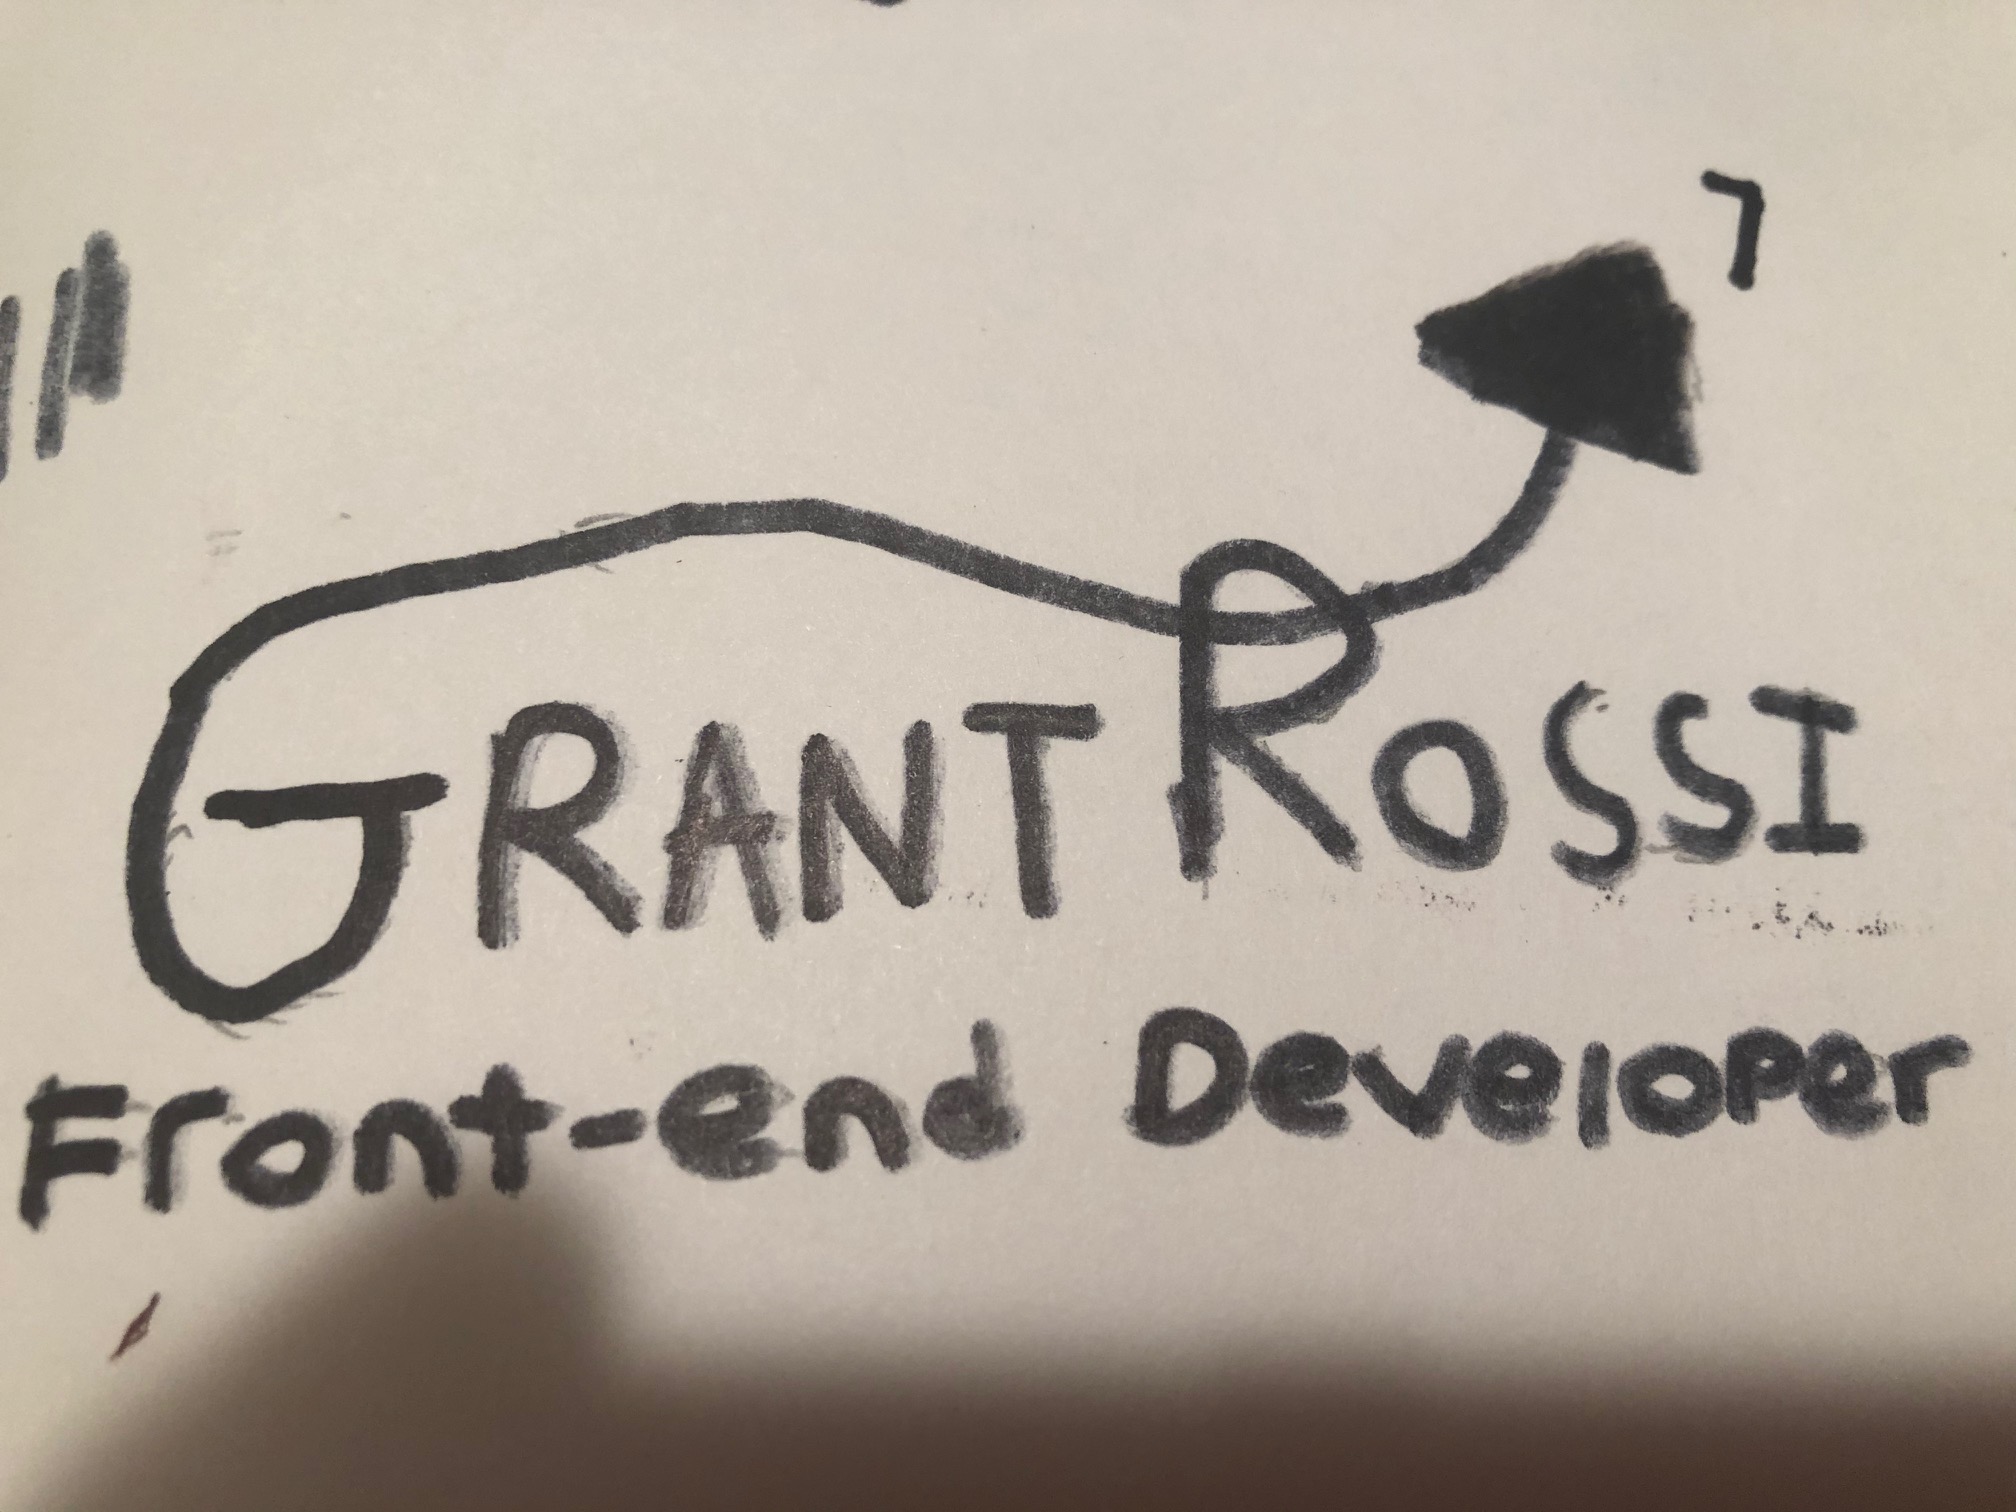 GRANT ROSSI
Front-end Developer